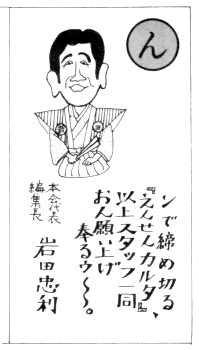 ん
ンで締め切る
『えんせんカルタ』、
以上スタッフ一同
おん願い上げ
奉るゥ〜〜。
本会代表
編集長
岩田忠利